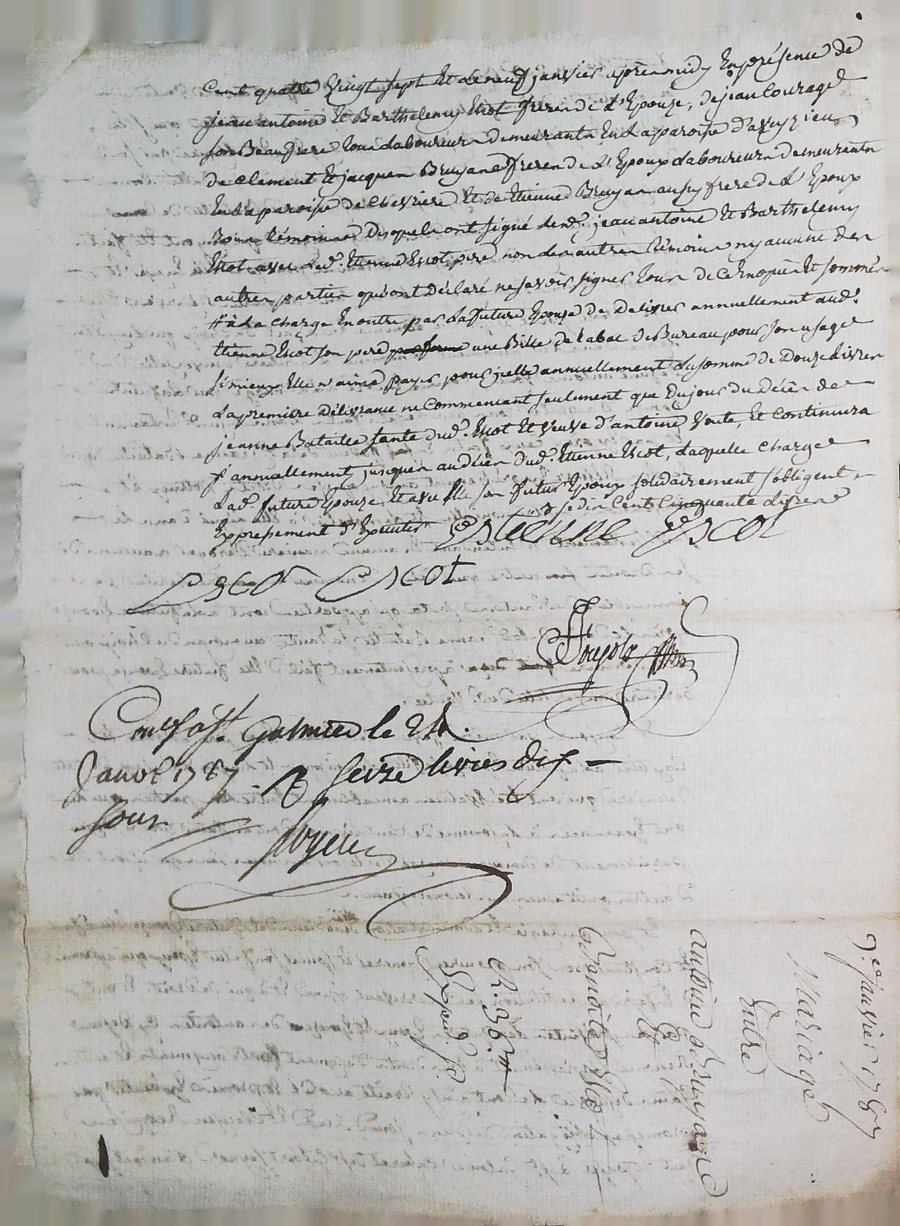 Cent quatre Vingt Sept Et le neuf janvier après midy En présence de
jean antoine Et Barthelemy Escot freres de d.e Epouze, de jean Courage
son Beaufrere tous Laboureurs demeurants En la paroisse d'aveyzieu
de Clement Et jacques Bruyas freres de d. Epoux Laboureurs demeurants
En la paroisse de Chevriere Et de Etienne Bruyas aussy frere de d. Epoux
tous témoins Desquels ont signé lesd. jean antoine Et Barthelemy
Escot avec led. Etienne Escot pere non les autres témoins ny aucune des
autres parties qui ont déclaré ne savoir signer tous de ce Enquis Et sommés
à la charge En outre par la future Epouze de delivrer annuellement aud.
Etienne Escot son pere une Bille de tabac de Bureau pour son usage
si mieux Elle n'aime payer pour jcelle annuellement la somme de Douze livres
la premiere délivrance ne commencant seulement que du jour du Décès de
jeanne Bataille tante dud. Escot Et veuve d'antoine Et continura
annuellement jusques au décès dud. Etienne Escot, laquelle charge
lad. future Epouze, Et avec Elle son futur Epoux solidairement s'obligent
Expressement d'Executer Cent Cinquante livres
Estienne Escot
Escot Escot
Con.lé à S.t Galmier le 24
Janv.r 1787. R. Seize livres dix
sous
9.e janvier 1787
Mariage
Entre
antoine Bruyas
Et
Benoite Escot
Ch. 36 #
Exped.